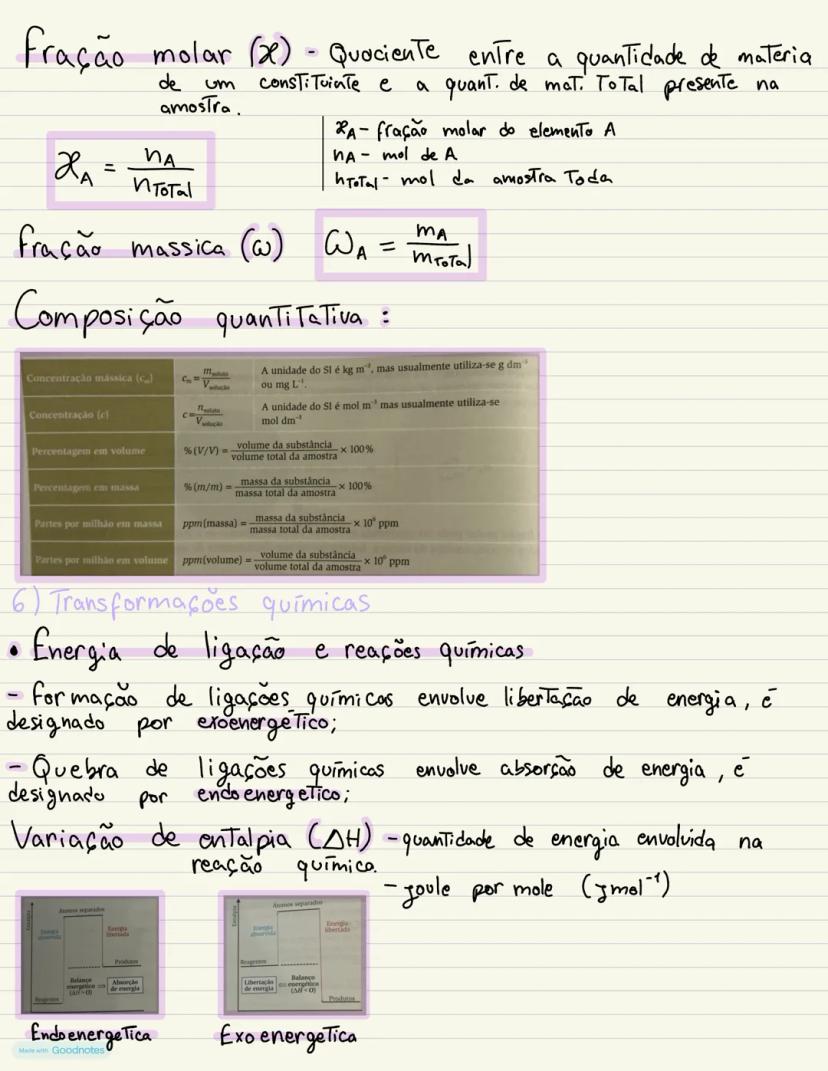 Fração molar (x) - Quociente entre a quantidade de matéria
de um constituinte e a quant. de mat. Total presente na
amostra.
x_A = n_A / n_Total
x_A - fração molar do elemento A
n_A - mol de A
n_Total - mol da amostra Toda
fração massica (ω) ω_A = m_A / m_Total
Composição quantitativa :
Concentração mássica (c_m) c_m = m_soluto / V_solução A unidade do SI é kg m⁻³, mas usualmente utiliza-se g dm⁻³
ou mg L⁻¹.
Concentração (c) c = n_soluto / V_solução A unidade do SI é mol m⁻³ mas usualmente utiliza-se
mol dm⁻³
Percentagem em volume %(V/V) = volume da substância / volume total da amostra × 100%
Percentagem em massa %(m/m) = massa da substância / massa total da amostra × 100%
Partes por milhão em massa ppm(massa) = massa da substância / massa total da amostra × 10⁶ ppm
Partes por milhão em volume ppm(volume) = volume da substância / volume total da amostra × 10⁶ ppm
6) Transformações químicas
• Energia de ligação e reações químicas
- formação de ligações químicas envolve libertação de energia, é
designado por exoenergético;
- Quebra de ligações químicas envolve absorção de energia, é
designado por endoenergetico;
Variação de entalpia (ΔH) - quantidade de energia envolvida na
reação química.
- joule por mole (J mol⁻¹)
Entalpia
Átomos separados
Energia
absorvida
Energia
libertada
Produtos
Balanço
energético
(ΔH > 0)
⇔
Absorção
de energia
Reagentes
Endoenergetica
Entalpia
Átomos separados
Energia
absorvida
Energia
libertada
Reagentes
Libertação
de energia
⇔
Balanço
energético
(ΔH < 0)
Produtos
Exoenergetica
Made with Goodnotes